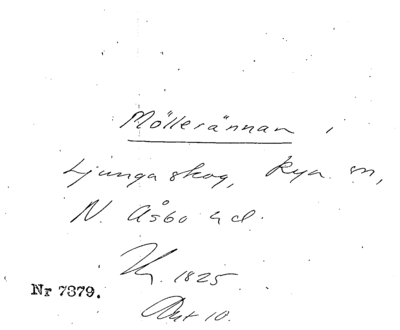 Möllerännan i
Ljungaskog, Rya sn,
N. Åsbo hd.
1825.
Nr 7379.
10.